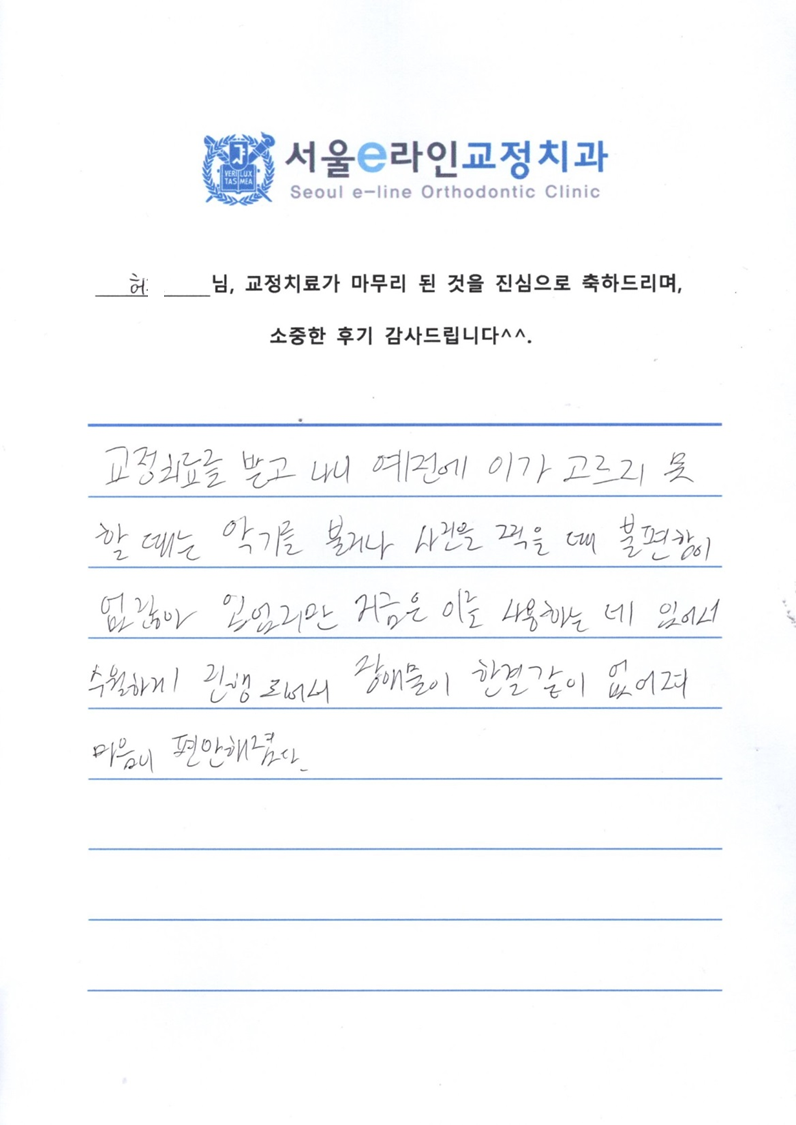 VERI LUX TAS MEA
서울e라인교정치과
Seoul e-line Orthodontic Clinic
허 님, 교정치료가 마무리 된 것을 진심으로 축하드리며,
소중한 후기 감사드립니다^^.
교정치료를 받고 나니 예전에 이가 고르지 못
할 때는 악기를 불거나 사진을 찍을 때 불편함이
있었지만 지금은 이를 사용하는 데 있어서
수월하게 진행 되어서 장애물이 한결같이 없어져
마음이 편안해졌다.